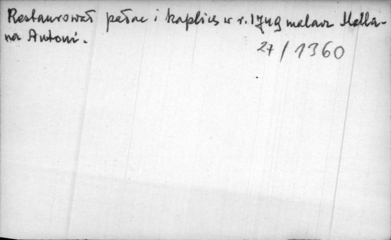 Restaurował pałac i kaplicę w r. 1749 malarz Mella-
na Antoni.
27/1360